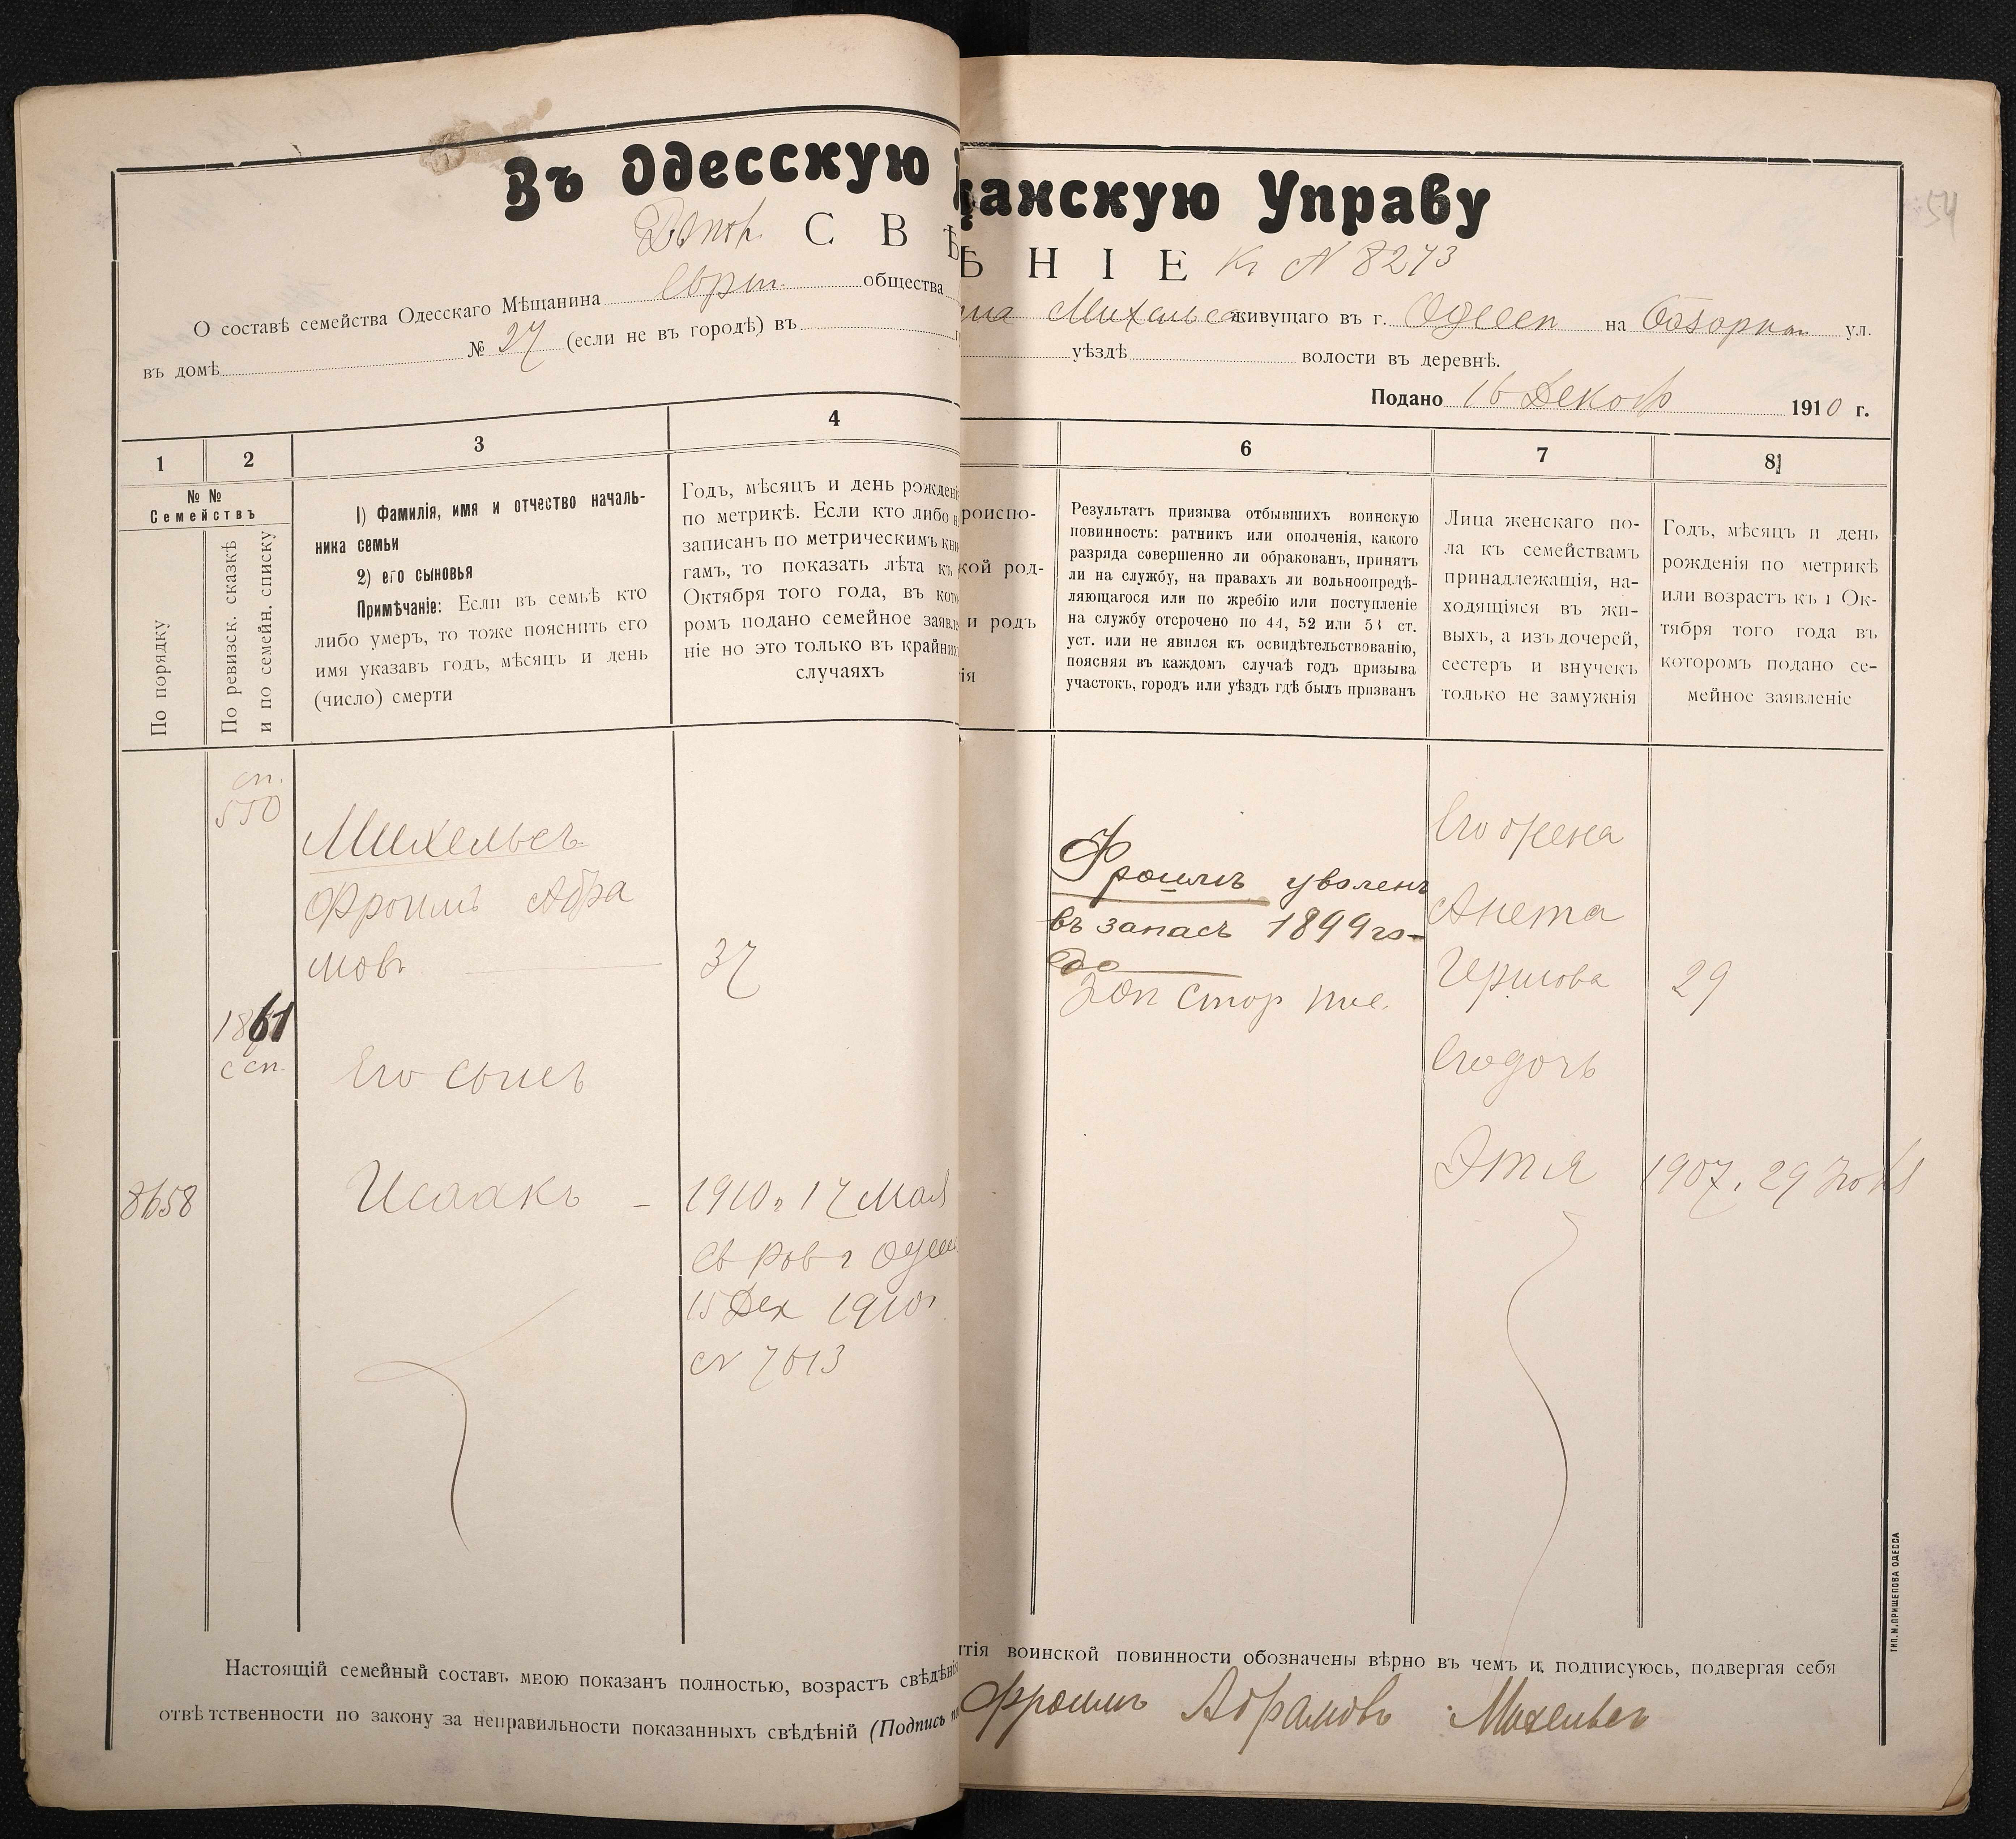 Въ Одесскую
щанскую Управу
54
С В Ѣ
Ѣ Н І Е къ № 8273
О составѣ семейства Одесскаго Мѣщанина Еврейск. общества
Михельса живущаго въ г. Одессѣ на Базарной ул.
въ домѣ № 27 (если не въ городѣ) въ
уѣздѣ волости въ деревнѣ.
Подано 16 Декабр 1910 г.
1
2
3
4
6
7
8
№ №
Семействъ
По порядку
По ревизск. сказкѣ
и по семейн. списку
1) Фамилія, имя и отчество началь-
ника семьи
2) его сыновья
Примѣчаніе: Если въ семьѣ кто
либо умеръ, то тоже пояснить его
имя указавъ годъ, мѣсяцъ и день
(число) смерти
Годъ, мѣсяцъ и день рожденія
по метрикѣ. Если кто либо н
записанъ по метрическимъ кни
гамъ, то показать лѣта къ
Октября того года, въ кото
ромъ подано семейное заявле
ніе но это только въ крайних
случаяхъ
роиспо-
кой род-
и родъ
ія
Результатъ призыва отбывшихъ воинскую
повинность: ратникъ или ополченія, какого
разряда совершенно ли обракованъ, принятъ
ли на службу, на правахъ ли вольноопредѣ-
ляющагося или по жребію или поступленіе
на службу отсрочено по 44, 52 или 53 ст.
уст. или не явился къ освидѣтельствованію,
поясняя въ каждомъ случаѣ годъ призыва
участокъ, городъ или уѣздъ гдѣ былъ призванъ
Лица женскаго по-
ла къ семействамъ
принадлежащія, на-
ходящіяся въ жи-
выхъ, а изъ дочерей,
сестеръ и внучекъ
только не замужнія
Годъ, мѣсяцъ и день
рожденія по метрикѣ
или возрастъ къ 1 Ок-
тября того года въ
которомъ подано се-
мейное заявленіе
сп.
550
Михельсъ
Фроимъ Абра
мовъ 37
1861
с сп.
Его сынъ
8658
Исаакъ – 1910 г 17 Мая
Св Рав г Одессы
15 Дек 1910 г
№ 7613
Фроимъ уволенъ
въ запасъ 1899 го-
да
Его жена
Анета
Гершова 29
Его дочь
Этля 1907. 29
Настоящій семейный составъ мною показанъ полностью, возрастъ свѣдѣнія
тія воинской повинности обозначены вѣрно въ чемъ и подписуюсь, подвергая себя
отвѣтственности по закону за неправильности показанныхъ свѣдѣній (Подпись
Фроимъ Абрамовъ Михельсъ
ТИП. М. ПРИЩЕПОВА ОДЕССА